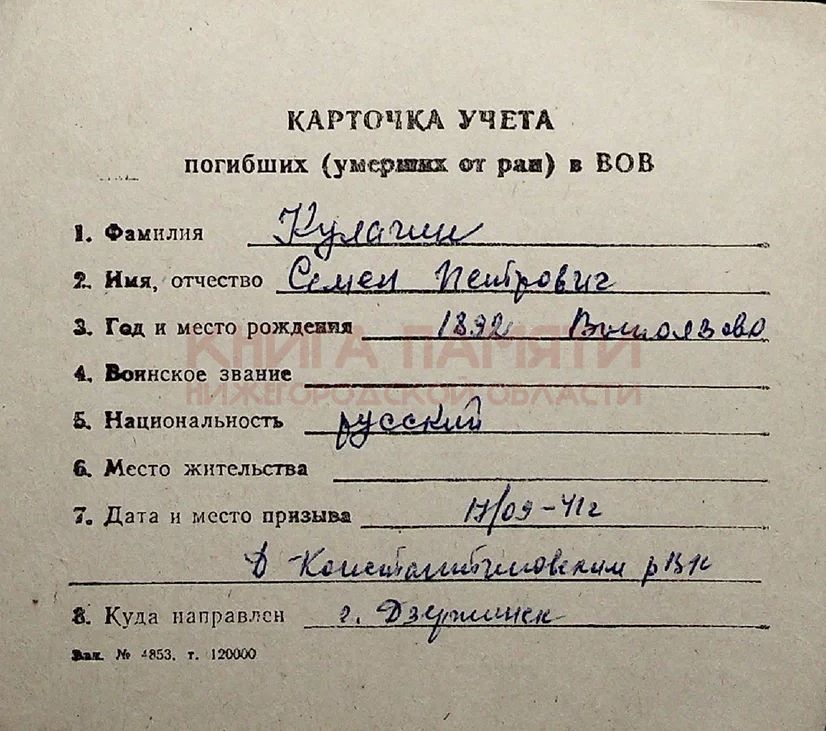 КАРТОЧКА УЧЕТА
погибших (умерших от ран) в ВОВ
1. Фамилия Кулагин
2. Имя, отчество Семен Петрович
3. Год и место рождения 1892
КНИГА ПАМЯТИ
4. Воинское звание
НИЖЕГОРОДСКОЙ ОБЛАСТИ
5. Национальность русский
6. Место жительства
7. Дата и место призыва 17/09-41г
Д Константиновским рВк
8. Куда направлен г. Дзержинск
Зак. № 4853. т. 120000